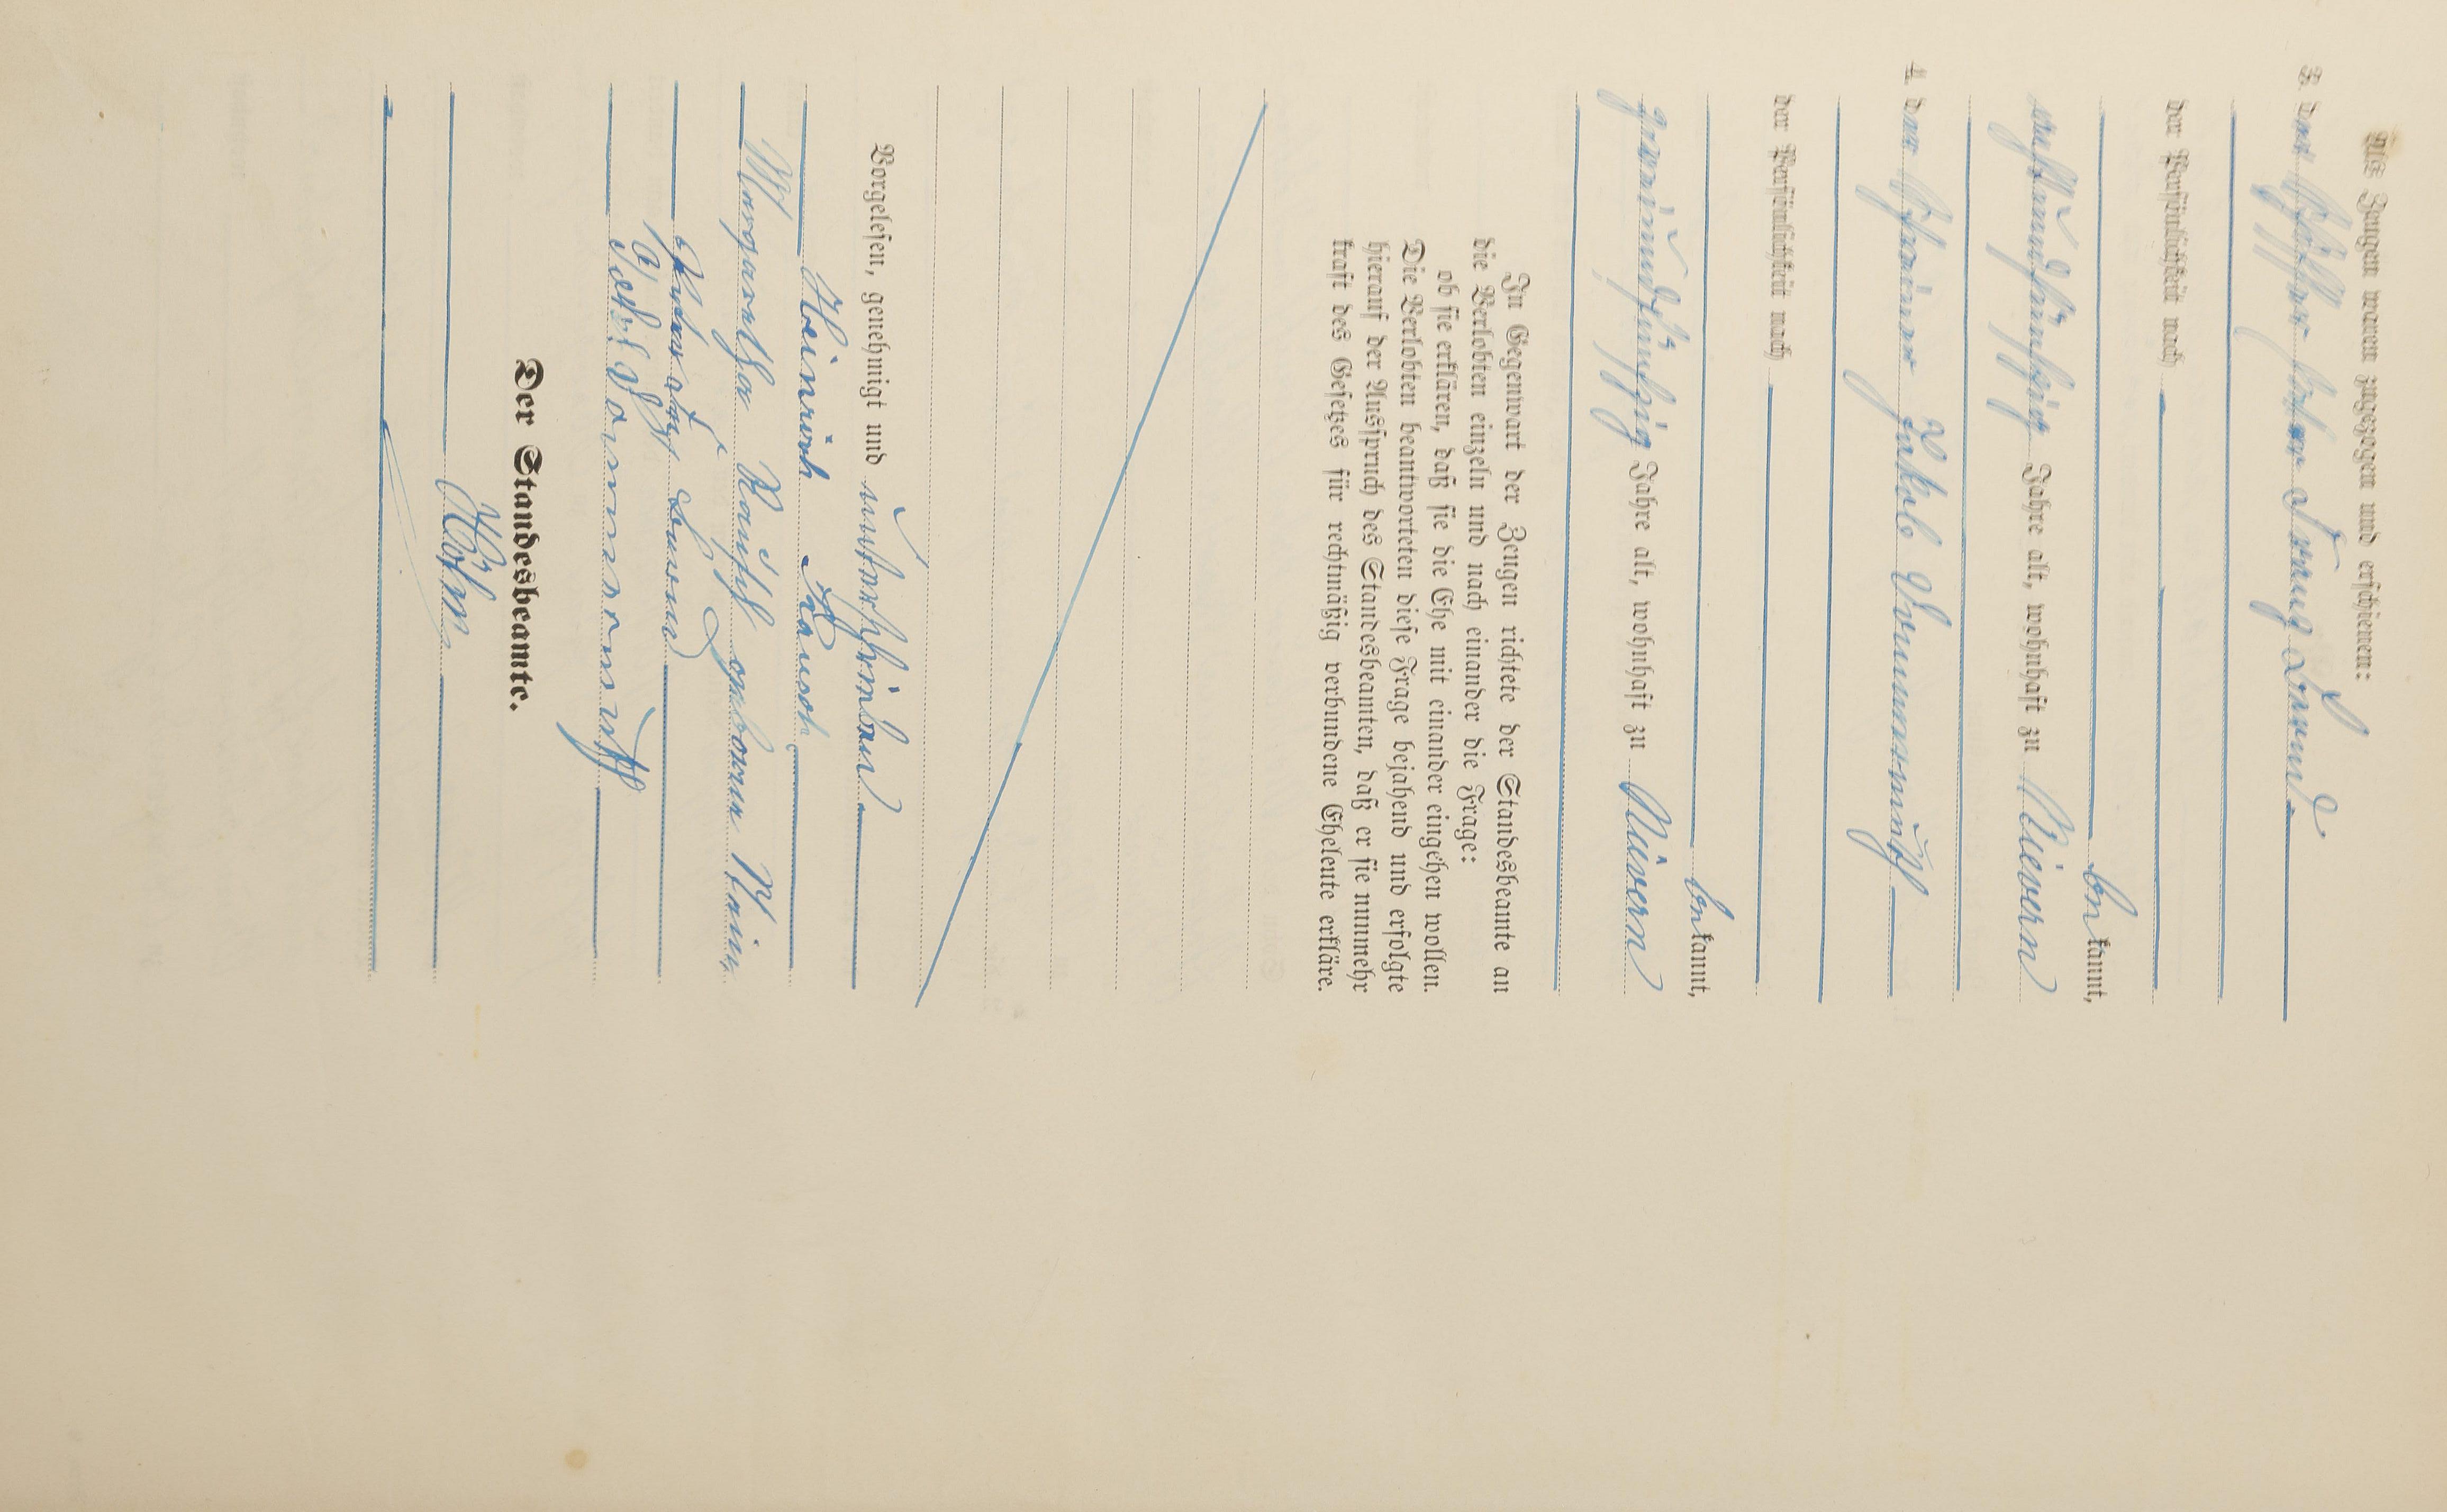 Als Zeugen waren zugezogen und erschienen:
3. der Schöffer Peter Franz Lamd.
der Persönlichkeit nach
bekannt,
achtundfünfzig Jahre alt, wohnhaft zu Nievern
4. der Schreiner Jakob Dommermuth
der Persönlichkeit nach
bekannt,
zweiundfünfzig Jahre alt, wohnhaft zu Nievern
In Gegenwart der Zeugen richtete der Standesbeamte an
die Verlobten einzeln und nach einander die Frage:
ob sie erklären, daß sie die Ehe mit einander eingehen wollen.
Die Verlobten beantworteten diese Frage bejahend und erfolgte
hierauf der Ausspruch des Standesbeamten, daß er sie nunmehr
kraft des Gesetzes für rechtmäßig verbundene Eheleute erkläre.
Vorgelesen, genehmigt und unterschrieben
Heinrich Rausch
Margaretha Rausch geborene
Peter
Jakob Dommermuth
Der Standesbeamte.
Höhn